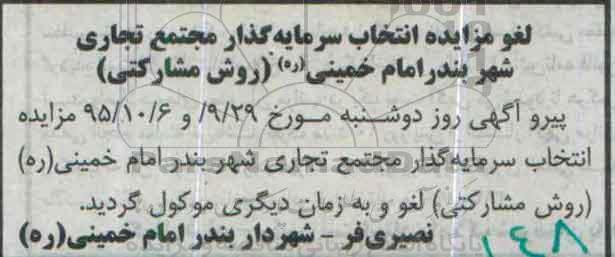 لغو مزایده انتخاب سرمایه‌گذار مجتمع تجاری
شهر بندر امام خمینی(ره) (روش مشارکتی)
پیرو آگهی روز دوشنبه مورخ ۹/۲۹/ و ۹۵/۱۰/۶ مزایده
انتخاب سرمایه‌گذار مجتمع تجاری شهر بندر امام خمینی(ره)
(روش مشارکتی) لغو و به زمان دیگری موکول گردید.
نصیری‌فر - شهردار بندر امام خمینی(ره)
۱۶۸